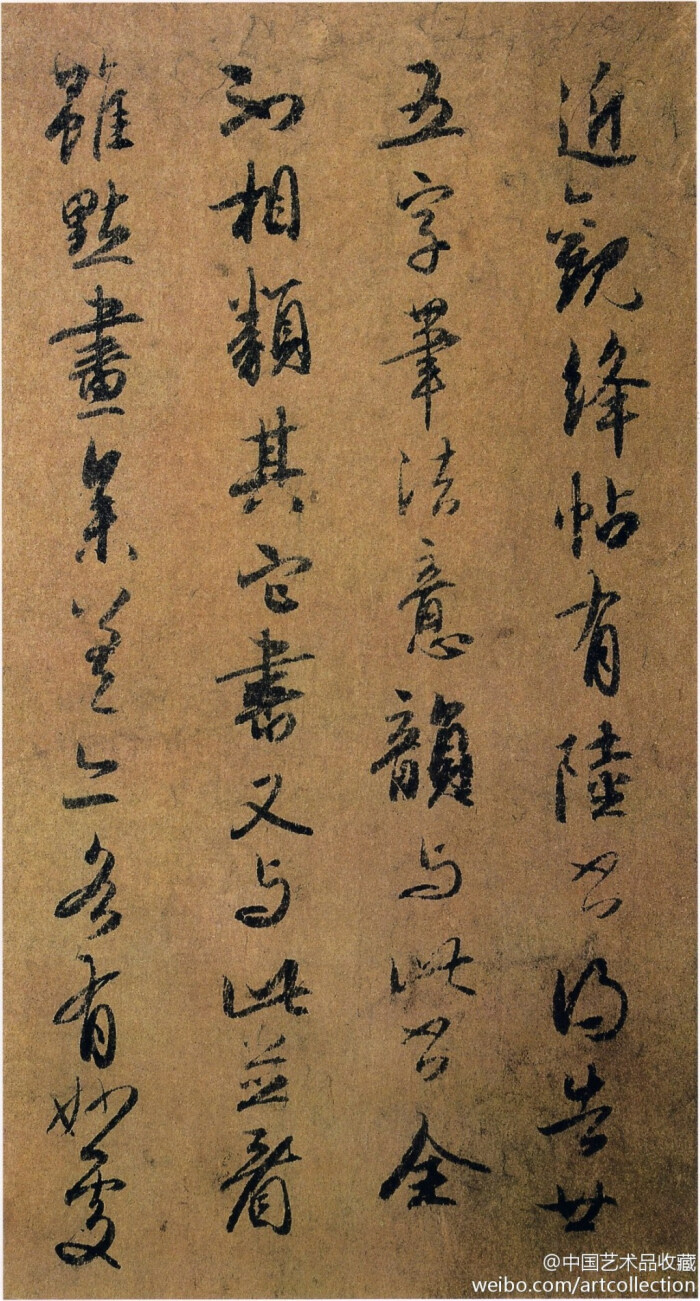 近觀絳帖有陸公得告廿
五字筆法意韻与此公全
不相類其它書又与此並看
雖點畫參差亦各有妙處
@中国艺术品收藏
weibo.com/artcollection